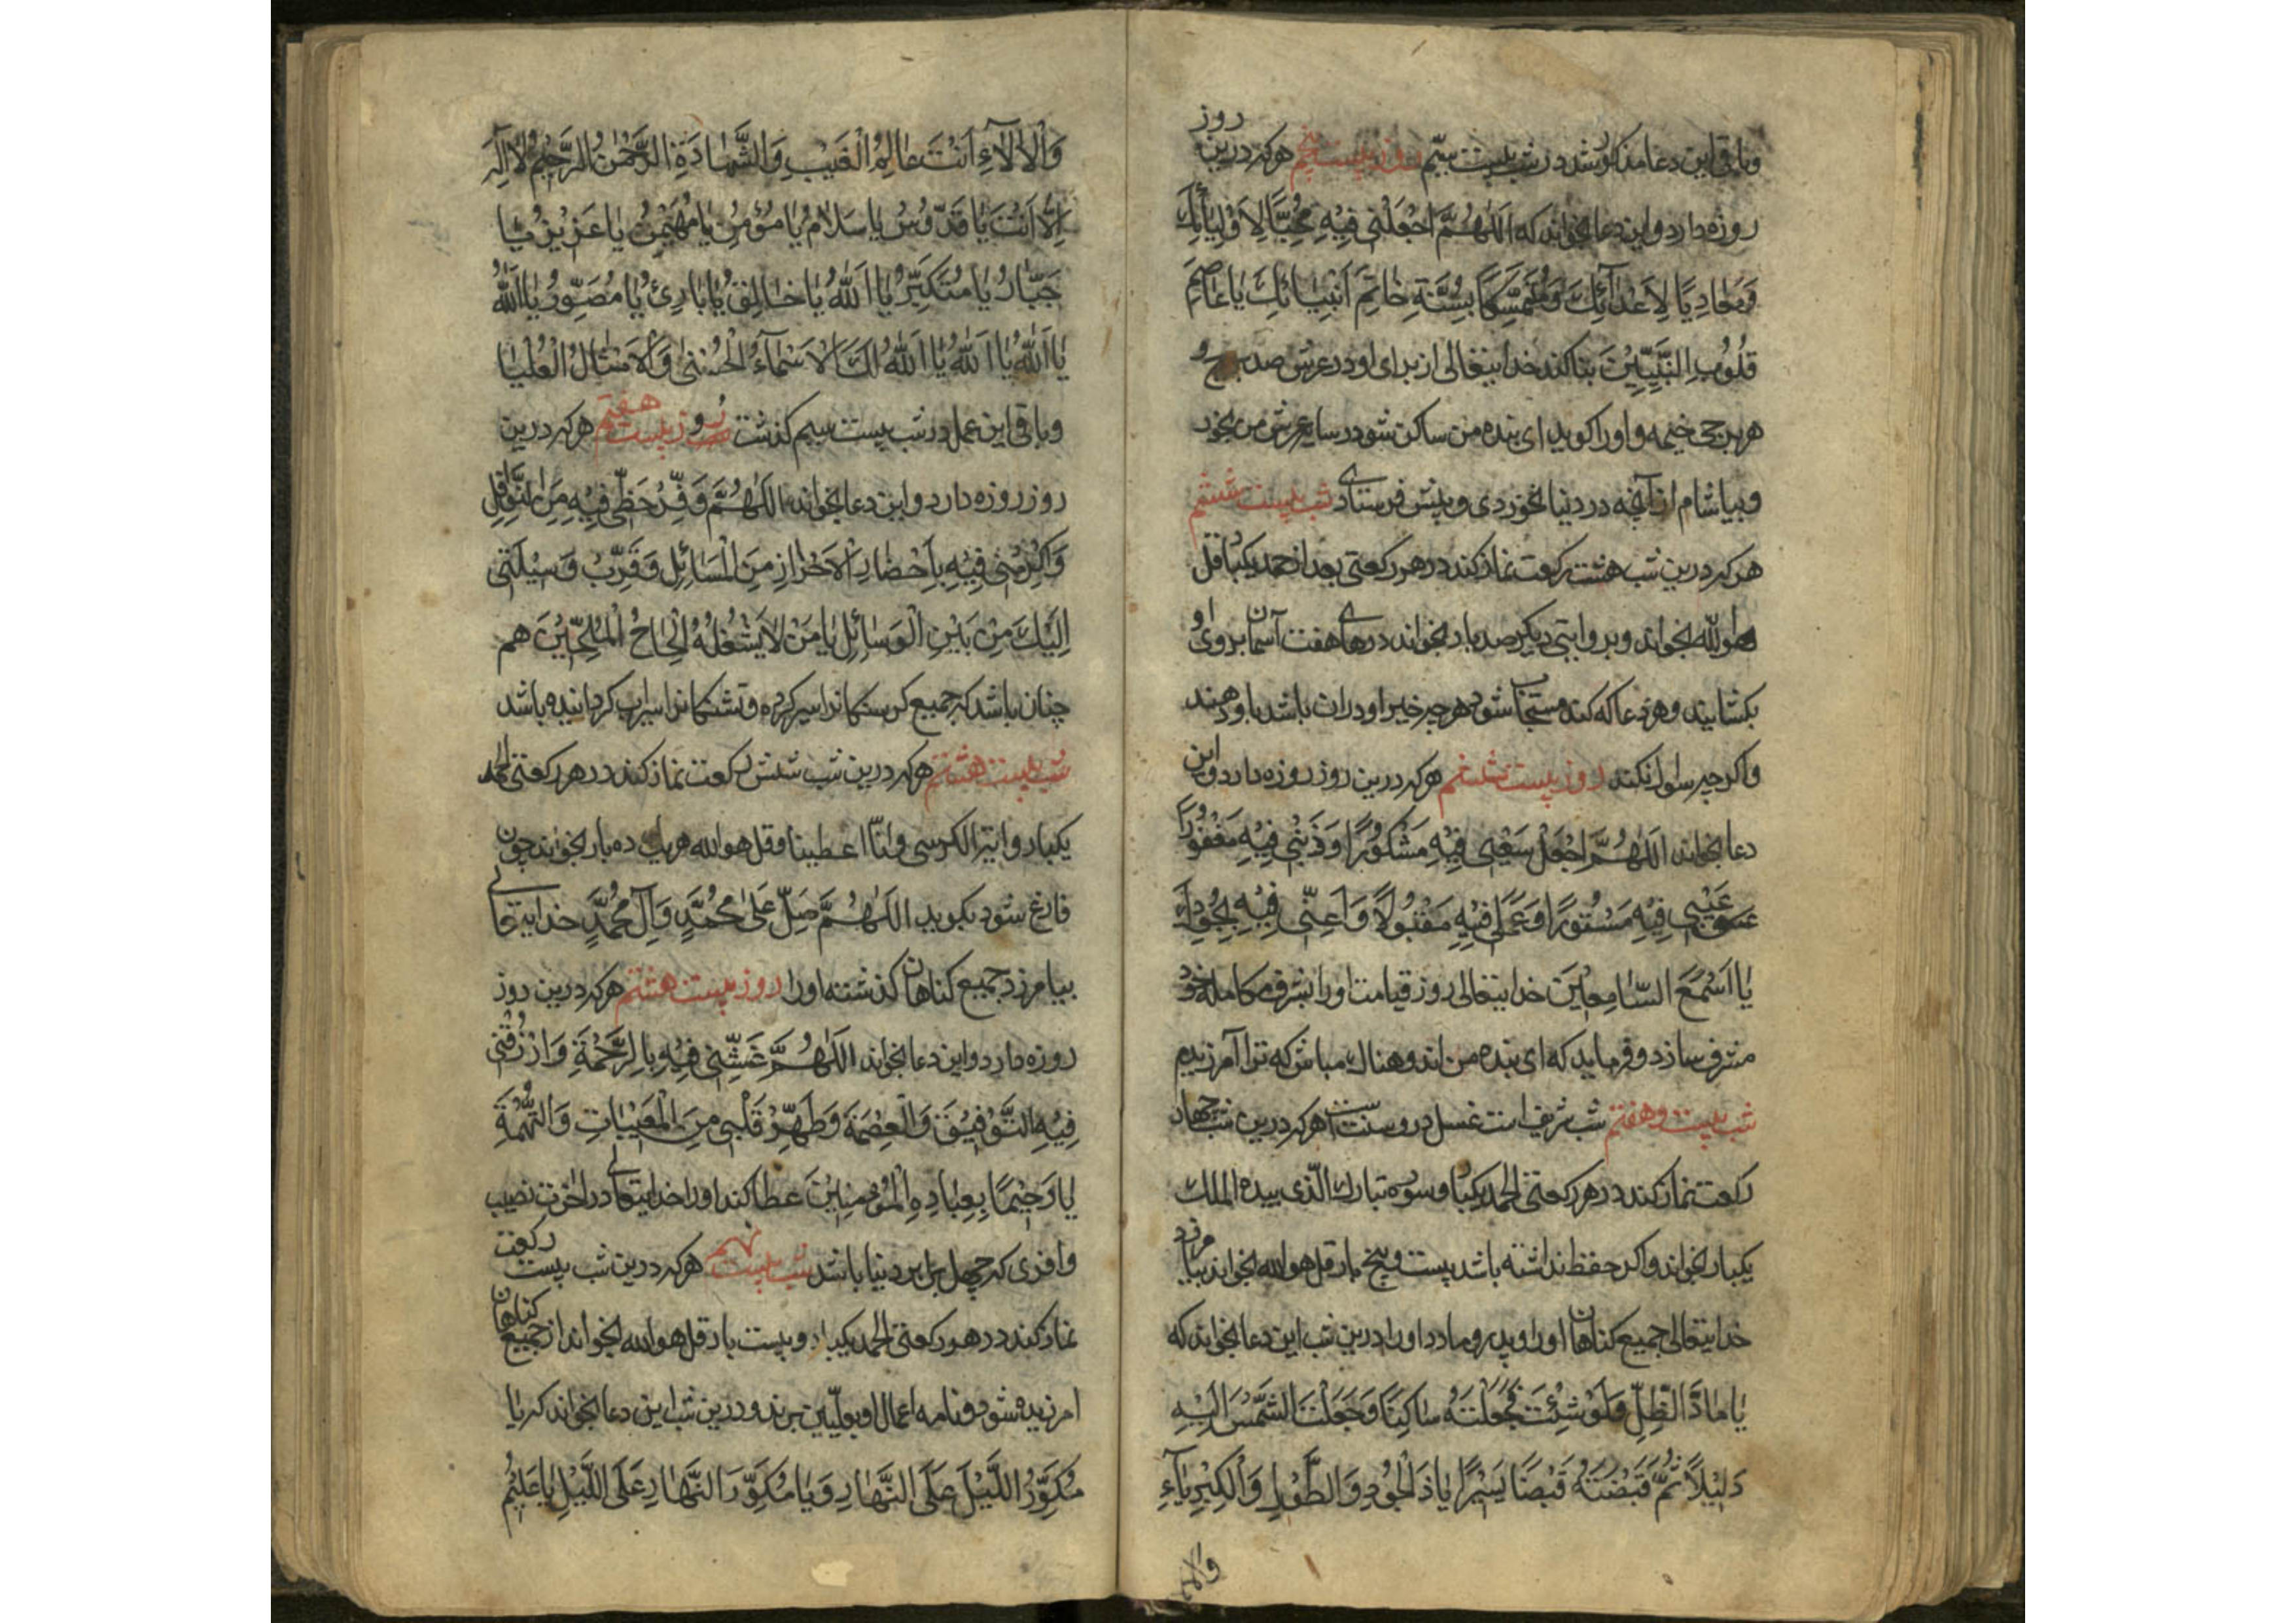 وباقی این دعا مذکور شد در شب بیست سیّم روز بیست پنجم هرکه درین روز
روزه دارد و این دعا بخواند که اَللّٰهُمَّ اجْعَلْنی فیْهِ مُحِبًّا لِاَوْلِیٰائِكَ
وَمُعٰادِیًا لِاَعْدٰآئِكَ وَمُتَمَسِّکًا بِسُنَّةِ خٰاتِمِ اَنْبِیٰائِكَ یٰا عٰاصِمَ
قُلُوْبِ النَّبِیِّیْنَ بنا کند خدایتعالی از برای او در عرش صد برج و
هر برجی خیمه و او را کوید ای بنده من ساکن شو در سایه عرش من بخور
وبیاشام از آنچه در دنیا نخوردی و پیش فرستادی شب بیست ششم
هرکه درین شب هشت رکعت نماز کند در هر رکعتی بعد از حمد یکبا قل
هو اللّه بخواند وبروایتی دیکر صد بار بخواند درهای هفت آسمان بروی او
بکشایند وهر دعا که کند مستجاب شود هر چه خیر او در ان باشد باو دهند
واکر چه سوال نکند روز بیست ششم هرکه درین روز روزه دارد و این
دعا بخواند اَللّٰهُمَّ اجْعَلْ سَعْیی فِیْهِ مَشْکُوْرًا وَذَنْبِی فِیْهِ مَغْفُوْرًا
عَیْبِی فِیْهِ مَسْتُوْرًا وَعَمَلی فِیْهِ مَقْبُوْلًا وَ فِیْهِ
یٰا اَسْمَعَ السّٰامِعِیْنَ خدایتعالی روز قیامت او را بشرف کامله خود
مشرف سازد و فرماید که ای بنده من اندوهناك مباش که ترا آمرزیدم
شب بیست و هفتم شب شریف است غسل درو سنّت است هرکه درین شب چهار
رکعت نماز کند در هر رکعتی الحمد یکبا و سوره تبارك الّذی بیده الملك
یکبار بخواند واکر حفظ نداشته باشد بیست و پنج بار قل هو الله بخواند بیامرزد
خدایتعالی جمیع کناهان او را و پدر و مادر او را درین شب این دعا بخواند که
یٰا مٰادَّ الظِّلِّ وَلَوْ شِئْتَ لَجَعَلْتَهُ سٰاکِنًا وَجَعَلْتَ الشَّمْسَ اِلَیْهِ
دَلِیْلًا ثُمَّ قَبَضْتَهُ قَبْضًا یَسِیْرًا یٰا ذَا الْجُوْدِ وَالطَّوْلِ وَالْکِبْرِیٰآءِ
والا
وَالْاٰلٰاءِ اَنْتَ عٰالِمُ الْغَیْبِ وَالشَّهٰادَةِ الرَّحْمٰنُ الرَّحِیْمُ لٰا اِلٰهَ
اِلّٰا اَنْتَ یٰا قُدُّوْسُ یٰا سَلٰامُ یٰا مُؤْمِنُ یٰا مُهَیْمِنُ یٰا عَزِیْزُ یٰا
جَبّٰارُ یٰا مُتَکَبِّرُ یٰا اَللّٰهُ یٰا خٰالِقُ یٰا بٰارِئُ یٰا مُصَوِّرُ یٰا اَللّٰهُ
یٰا اَللّٰهُ یٰا اَللّٰهُ یٰا اَللّٰهُ لَكَ الْاَسْمٰآءُ الْحُسْنٰی وَالْاَمْثٰالُ الْعُلْیٰا
وباقی این عمل در شب بیست سیم کذشت روز بیست هفتم هرکه درین
روز روزه دارد و این دعا بخواند اَللّٰهُمَّ وَفِّرْ حَظّی فِیْهِ مِنَ النَّوٰافِلِ
وَاَکْرِمْنی فِیْهِ بِاِحْضٰارِ الْاَحْرٰازِ مِنَ الْمَسٰائِلِ وَقَرِّبْ وَسِیْلَتی
اِلَیْكَ مِنْ بَیْنِ الْوَسٰائِلِ یٰا مَنْ لٰا یَشْغَلُهُ اِلْحٰاحُ الْمُلِحّیْنَ هم
چنان باشد که جمیع کرسنکانرا سیر کرده و تشنکانرا سیراب کردانیده باشد
شب بیست هشتم هرکه درین شب شش رکعت نماز کند در هر رکعتی الحمد
یکبار وایة الکرسی وانّا اعطینا وقل هو الله هر یك ده بار بخواند چون
فارغ شود بکوید اللّٰهُمَّ صَلِّ عَلٰی مُحَمَّدٍ وَآلِ مُحَمَّدٍ خدایتعالی
بیامرزد جمیع کناهان کذشته او را روز بیست هشتم هرکه درین روز
روزه دارد و این دعا بخواند اَللّٰهُمَّ غَشِّنی فِیْهِ بِالرَّحْمَةِ وَارْزُقْنی
فِیْهِ التَّوْفِیْقَ وَالْعِصْمَةَ وَطَهِّرْ قَلْبی مِنَ وَالتُّهْمَةِ
یٰا رَحِیْمًا بِعِبٰادِهِ الْمُؤْمِنِیْنَ عطا کند او را خدایتعالی در اخرت نصیب
وافری که چهل برابر دنیا باشد شب بیست نهم هرکه درین شب بیست رکعت
نماز کند در هر رکعتی الحمد یکبار و بیست بار قل هو الله بخواند از جمیع کناهان
امرزیده شود و نامه اعمال او بعلّیین برند و درین شب این دعا بخواند که یٰا
مُکَوِّرُ اللَّیْلِ عَلَی النَّهٰارِ وَیٰا مُکَوِّرَ النَّهٰارِ عَلَی اللَّیْلِ یٰا عَلِیْمُ